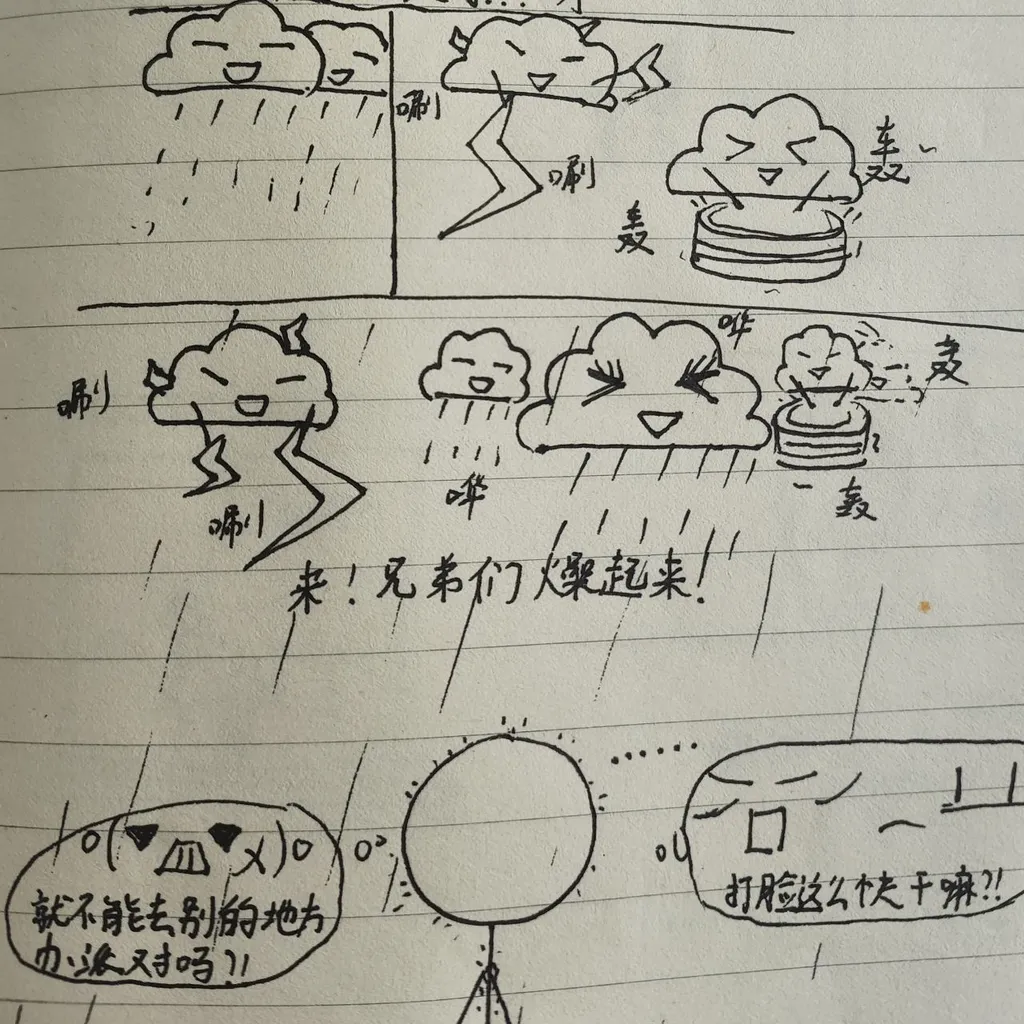 唰
唰
轰
轰
哗
唰
轰
哗
唰
轰
来！兄弟们燥起来！
就不能去别的地方
办派对吗?!
打脸这么快干嘛?!